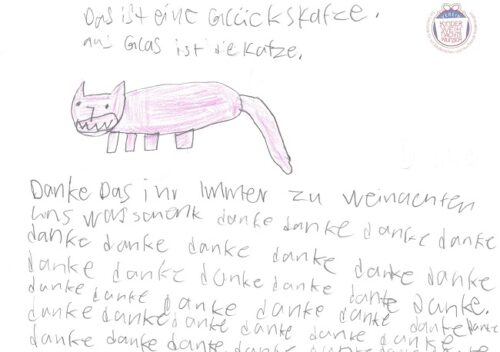 Das ist eine Glückskatze.
aui Glas ist die Katze.
KINDER
Danke Das ihr Immer zu weinachten
uns was schenk danke danke danke danke
danke danke danke danke danke
danke danke danke danke danke danke
danke danke danke danke danke danke.
danke danke danke danke danke danke danke
danke danke danke danke danke danke